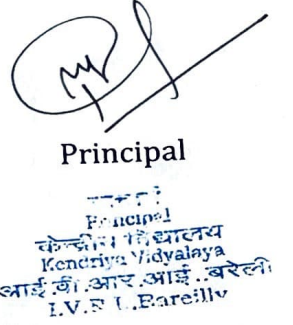 Principal
Principal
केन्द्रीय विद्यालय
Kendriya Vidyalaya
आई.वी.आर.आई..बरेली
I.V.R.I.,Bareilly